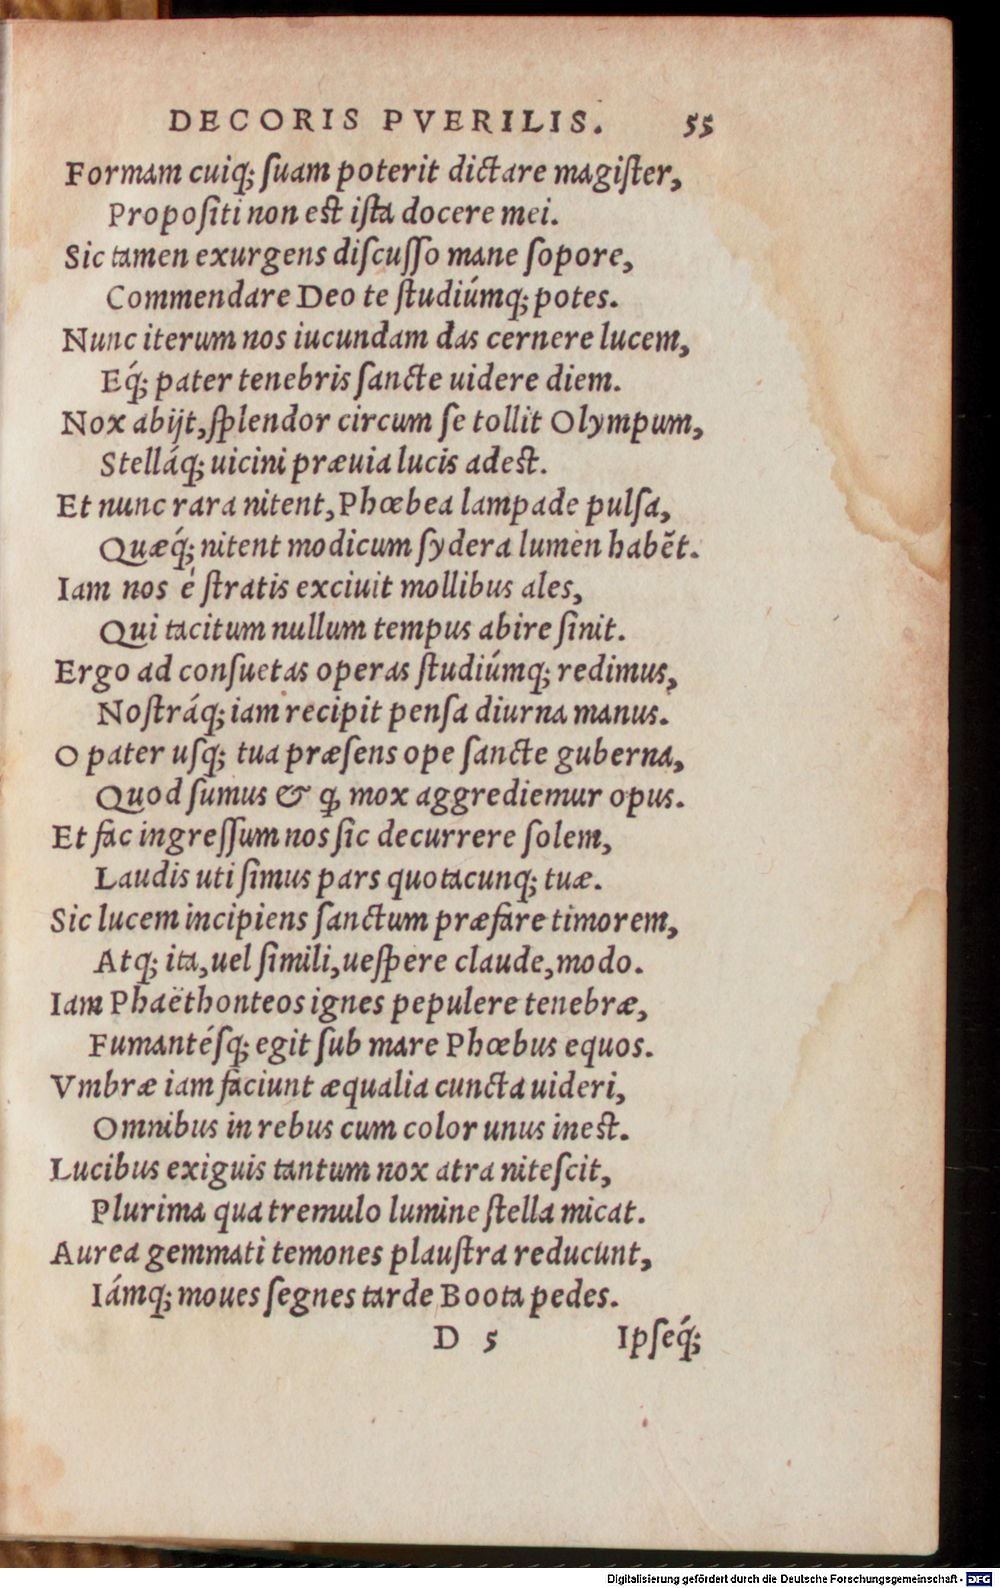 DECORIS PVERILIS. 55
Formam cuiq; ſuam poterit dictare magiſter,
Propoſiti non est iſta docere mei.
Sic tamen exurgens diſcuſſo mane ſopore,
Commendare Deo te ſtudiúmq; potes.
Nunc iterum nos iucundam das cernere lucem,
Eq́; pater tenebris ſancte uidere diem.
Nox abijt, ſplendor circum ſe tollit Olympum,
Stelláq; uicini præuia lucis adest.
Et nunc rara nitent, Phœbea lampade pulſa,
Quæq́; nitent modicum ſydera lumen habēt.
Iam nos é ſtratis exciuit mollibus ales,
Qui tacitum nullum tempus abire ſinit.
Ergo ad conſuetas operas ſtudiúmq; redimus,
Noſtráq; iam recipit penſa diurna manus.
O pater uſq; tua præſens ope ſancte guberna,
Quod ſumus & ꝙ mox aggrediemur opus.
Et fac ingreſſum nos ſic decurrere ſolem,
Laudis uti ſimus pars quotacunq; tuæ.
Sic lucem incipiens ſanctum præfare timorem,
Atq; ita, uel ſimili, ueſpere claude, modo.
Iam Phaëthonteos ignes pepulere tenebræ,
Fumantéſq; egit ſub mare Phœbus equos.
Vmbræ iam faciunt æqualia cuncta uideri,
Omnibus in rebus cum color unus inest.
Lucibus exiguis tantum nox atra niteſcit,
Plurima qua tremulo lumine ſtella micat.
Aurea gemmati temones plauſtra reducunt,
Iámq; moues ſegnes tarde Boota pedes.
D 5 Ipſeq́;
Digitalisierung gefördert durch die Deutsche Forschungsgemeinschaft - DFG